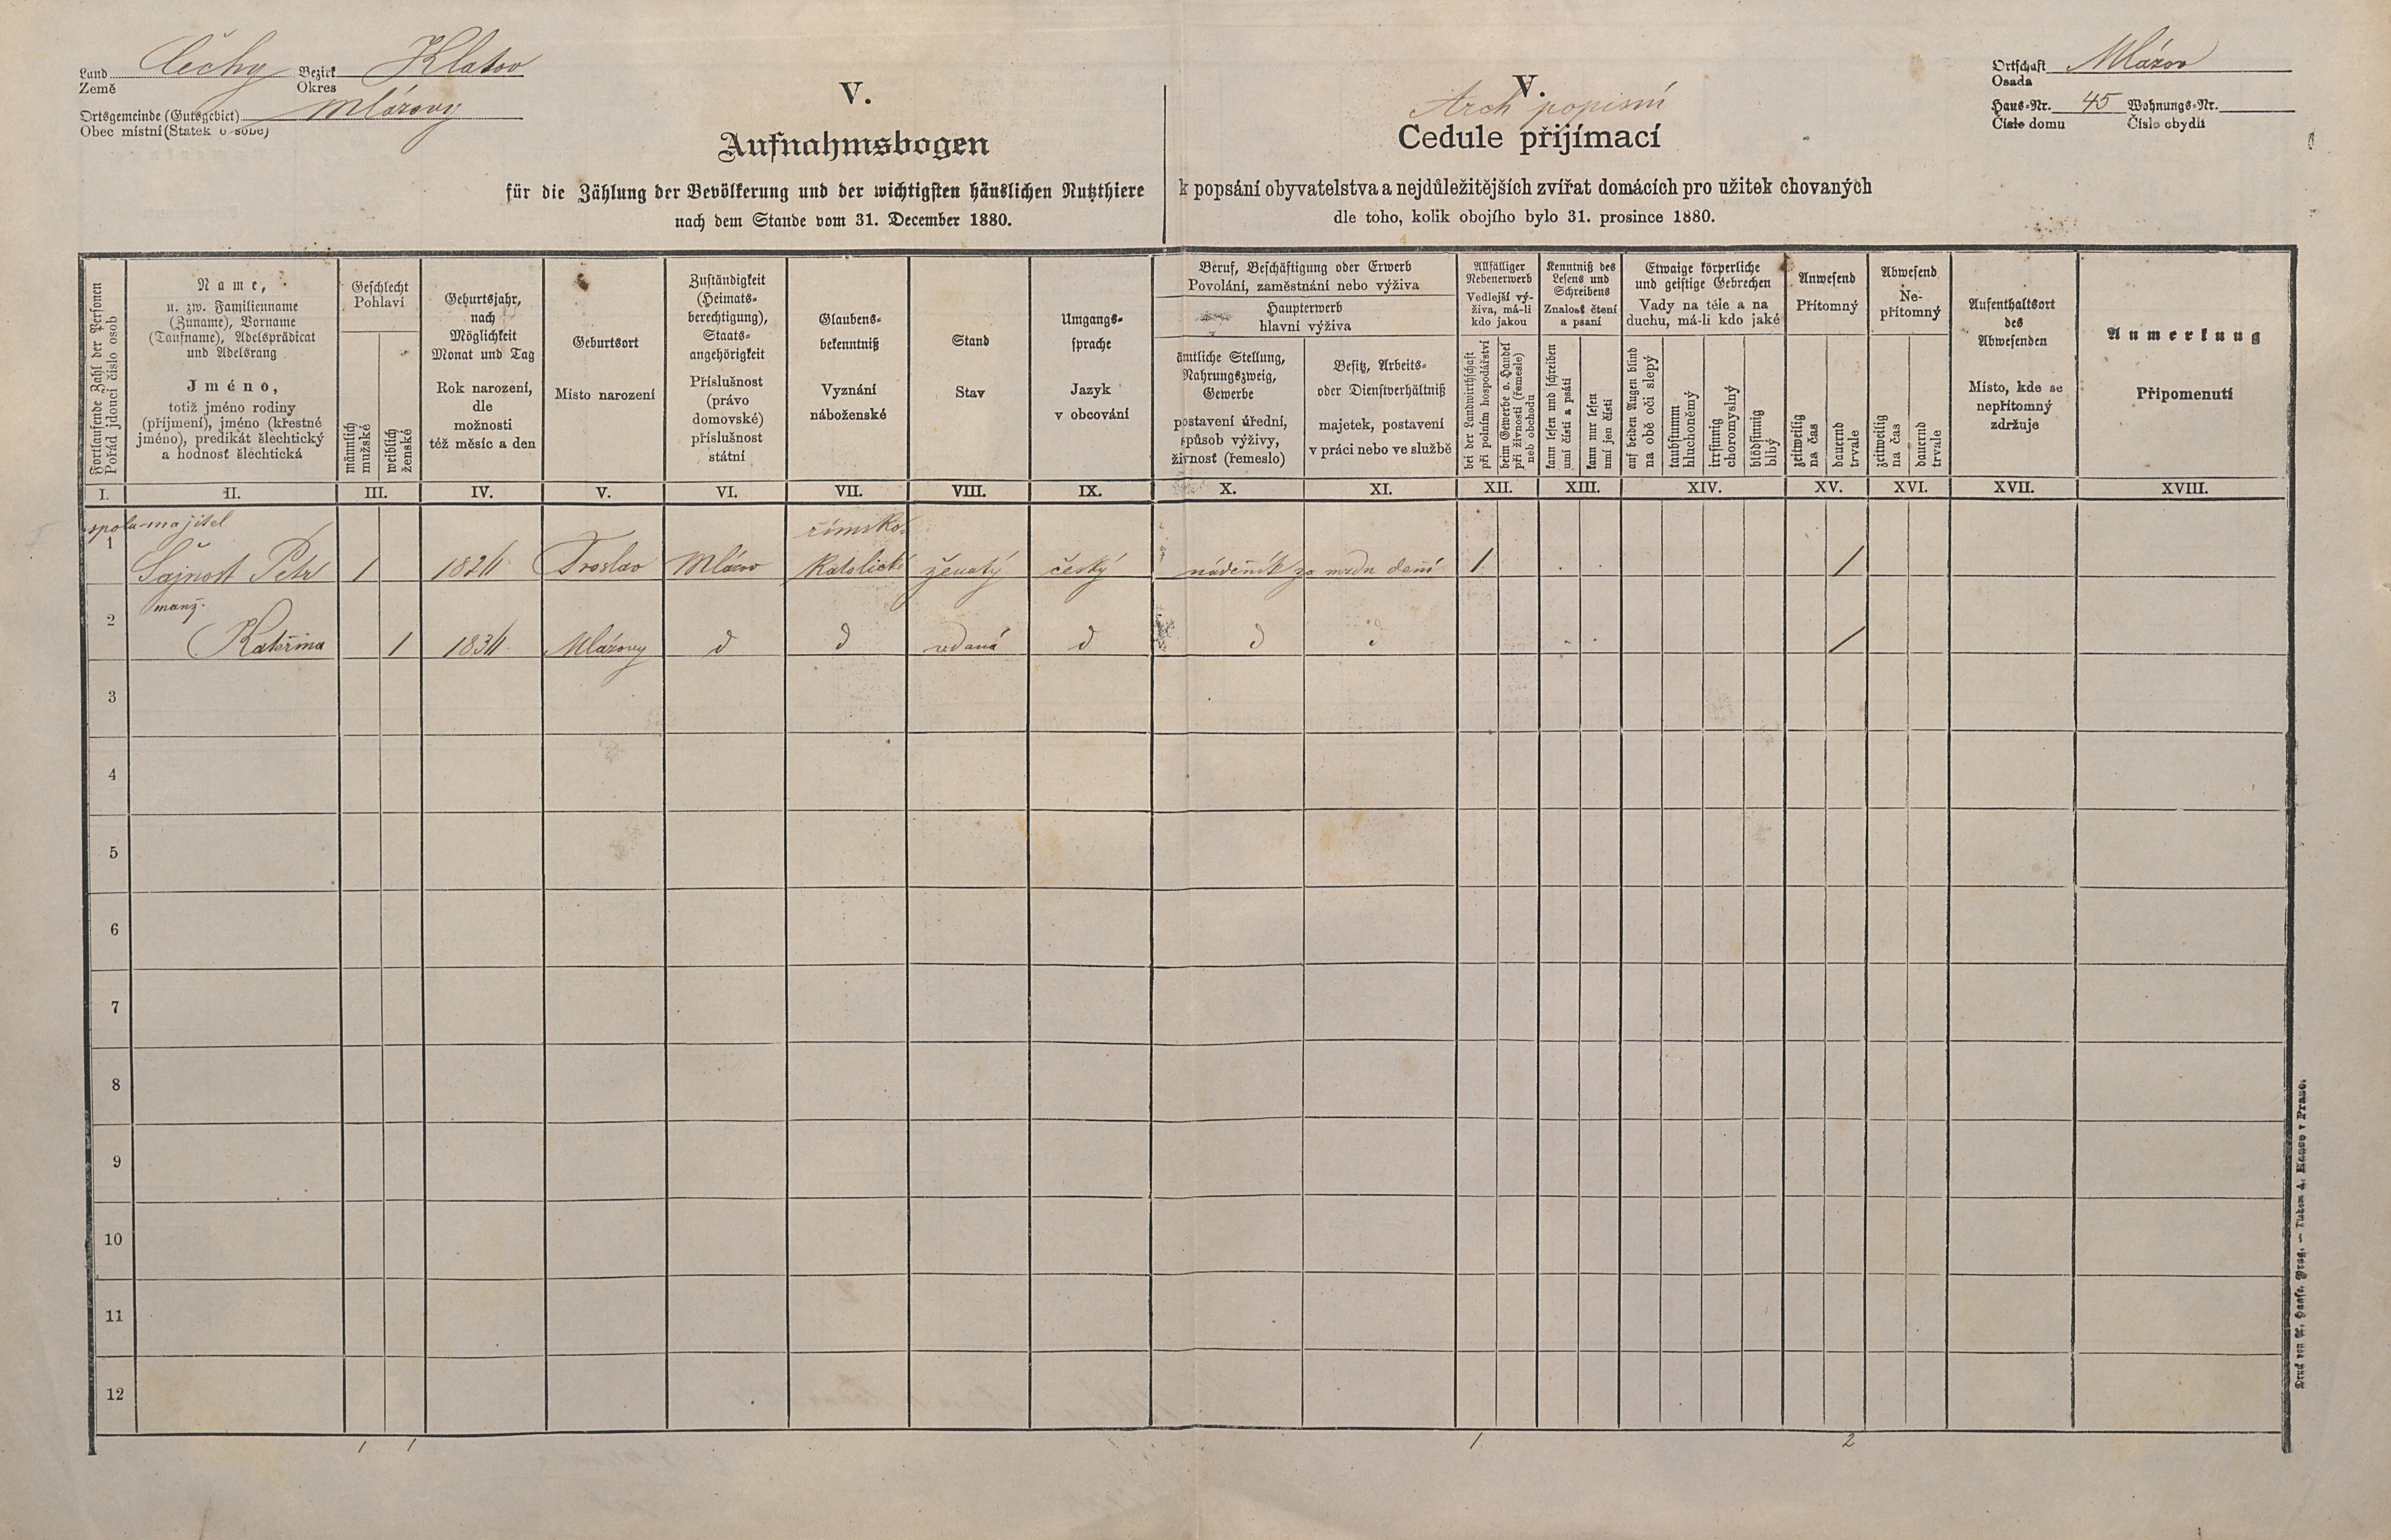 Land Čechy Bezirk Klatov
Země Okres
Ortsgemeinde (Gutsgebiet) Mlázovy
Obec místní (Statek o sobě)
V.
Aufnahmsbogen
für die Zählung der Bevölkerung und der wichtigsten häuslichen Nutzthiere
nach dem Stande vom 31. December 1880.
V.
Arch popisní
Cedule přijímací
k popsání obyvatelstva a nejdůležitějších zvířat domácích pro užitek chovaných
dle toho, kolik obojího bylo 31. prosince 1880.
Ortschaft Mlázov
Osada
Haus-Nr. 45 Wohnungs-Nr.
Číslo domu Číslo obydlí
Fortlaufende Zahl der Personen
Pořád jdoucí číslo osob
Name,
u. zw. Familienname
(Zuname), Vorname
(Taufname), Adelsprädicat
und Adelsrang
Jméno,
totiž jméno rodiny
(příjmení), jméno (křestné
jméno), predikát šlechtický
a hodnosť šlechtická
Geschlecht
Pohlaví
männlich
mužské
weiblich
ženské
Geburtsjahr,
nach
Möglichkeit
Monat und Tag
Rok narození,
dle
možnosti
též měsíc a den
Geburtsort
Místo narození
Zuständigkeit
(Heimats-
berechtigung),
Staats-
angehörigkeit
Příslušnost
(právo
domovské)
příslušnost
státní
Glaubens-
bekenntniß
Vyznání
náboženské
Stand
Stav
Umgangs-
sprache
Jazyk
v obcování
Beruf, Beschäftigung oder Erwerb
Povolání, zaměstnání nebo výživa
Haupterwerb
hlavní výživa
ämtliche Stellung,
Nahrungszweig,
Gewerbe
postavení úřední,
spůsob výživy,
živnosť (řemeslo)
Besitz, Arbeits-
oder Dienstverhältniß
majetek, postavení
v práci nebo ve službě
Allfälliger
Nebenerwerb
Vedlejší vý-
živa, má-li
kdo jakou
bei der Landwirthschaft
při polním hospodářství
beim Gewerbe o. Handel
při živnosti (řemesle)
neb obchodu
Kenntniß des
Lesens und
Schreibens
Znalosť čtení
a psaní
kann lesen und schreiben
umí čísti a psáti
kann nur lesen
umí jen čísti
Etwaige körperliche
und geistige Gebrechen
Vady na těle a na
duchu, má-li kdo jaké
auf beiden Augen blind
na obě oči slepý
taubstumm
hluchoněmý
irrsinnig
choromyslný
blödsinnig
blbý
Anwesend
Přítomný
zeitweilig
na čas
dauernd
trvale
Abwesend
Ne-
přítomný
zeitweilig
na čas
dauernd
trvale
Aufenthaltsort
des
Abwesenden
Místo, kde se
nepřítomný
zdržuje
Anmerkung
Připomenutí
I. II. III. IV. V. VI. VII. VIII. IX. X. XI. XII. XIII. XIV. XV. XVI. XVII. XVIII.
spolu-majitel římsko-
1 Šajnost Petr 1 1824 Mlázov katolické ženatý český nádeník za mzdu dení 1 1
manž.
2 Kateřina 1 1834 Mlázovy d d vdaná d d d 1
3
4
5
6
7
8
9
10
11
12
1 1 1 2
Druck von A. Haase, Prag. — Tiskem A. Haase v Praze.